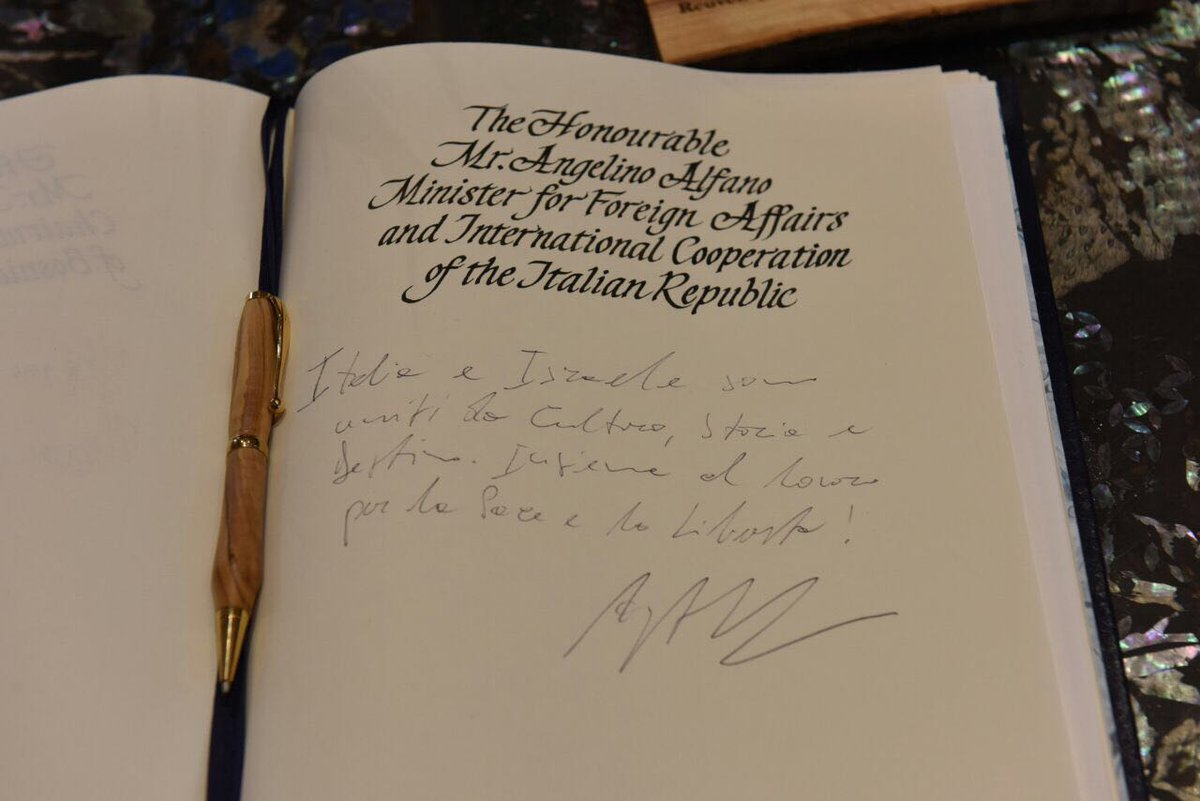 Reuven
The Honourable
Mr. Angelino Alfano
Minister for Foreign Affairs
and International Cooperation
of the Italian Republic
Italia e Israele sono
uniti da Cultura, Storia e
destino. Insieme al lavoro
per la Pace e la Libertà!